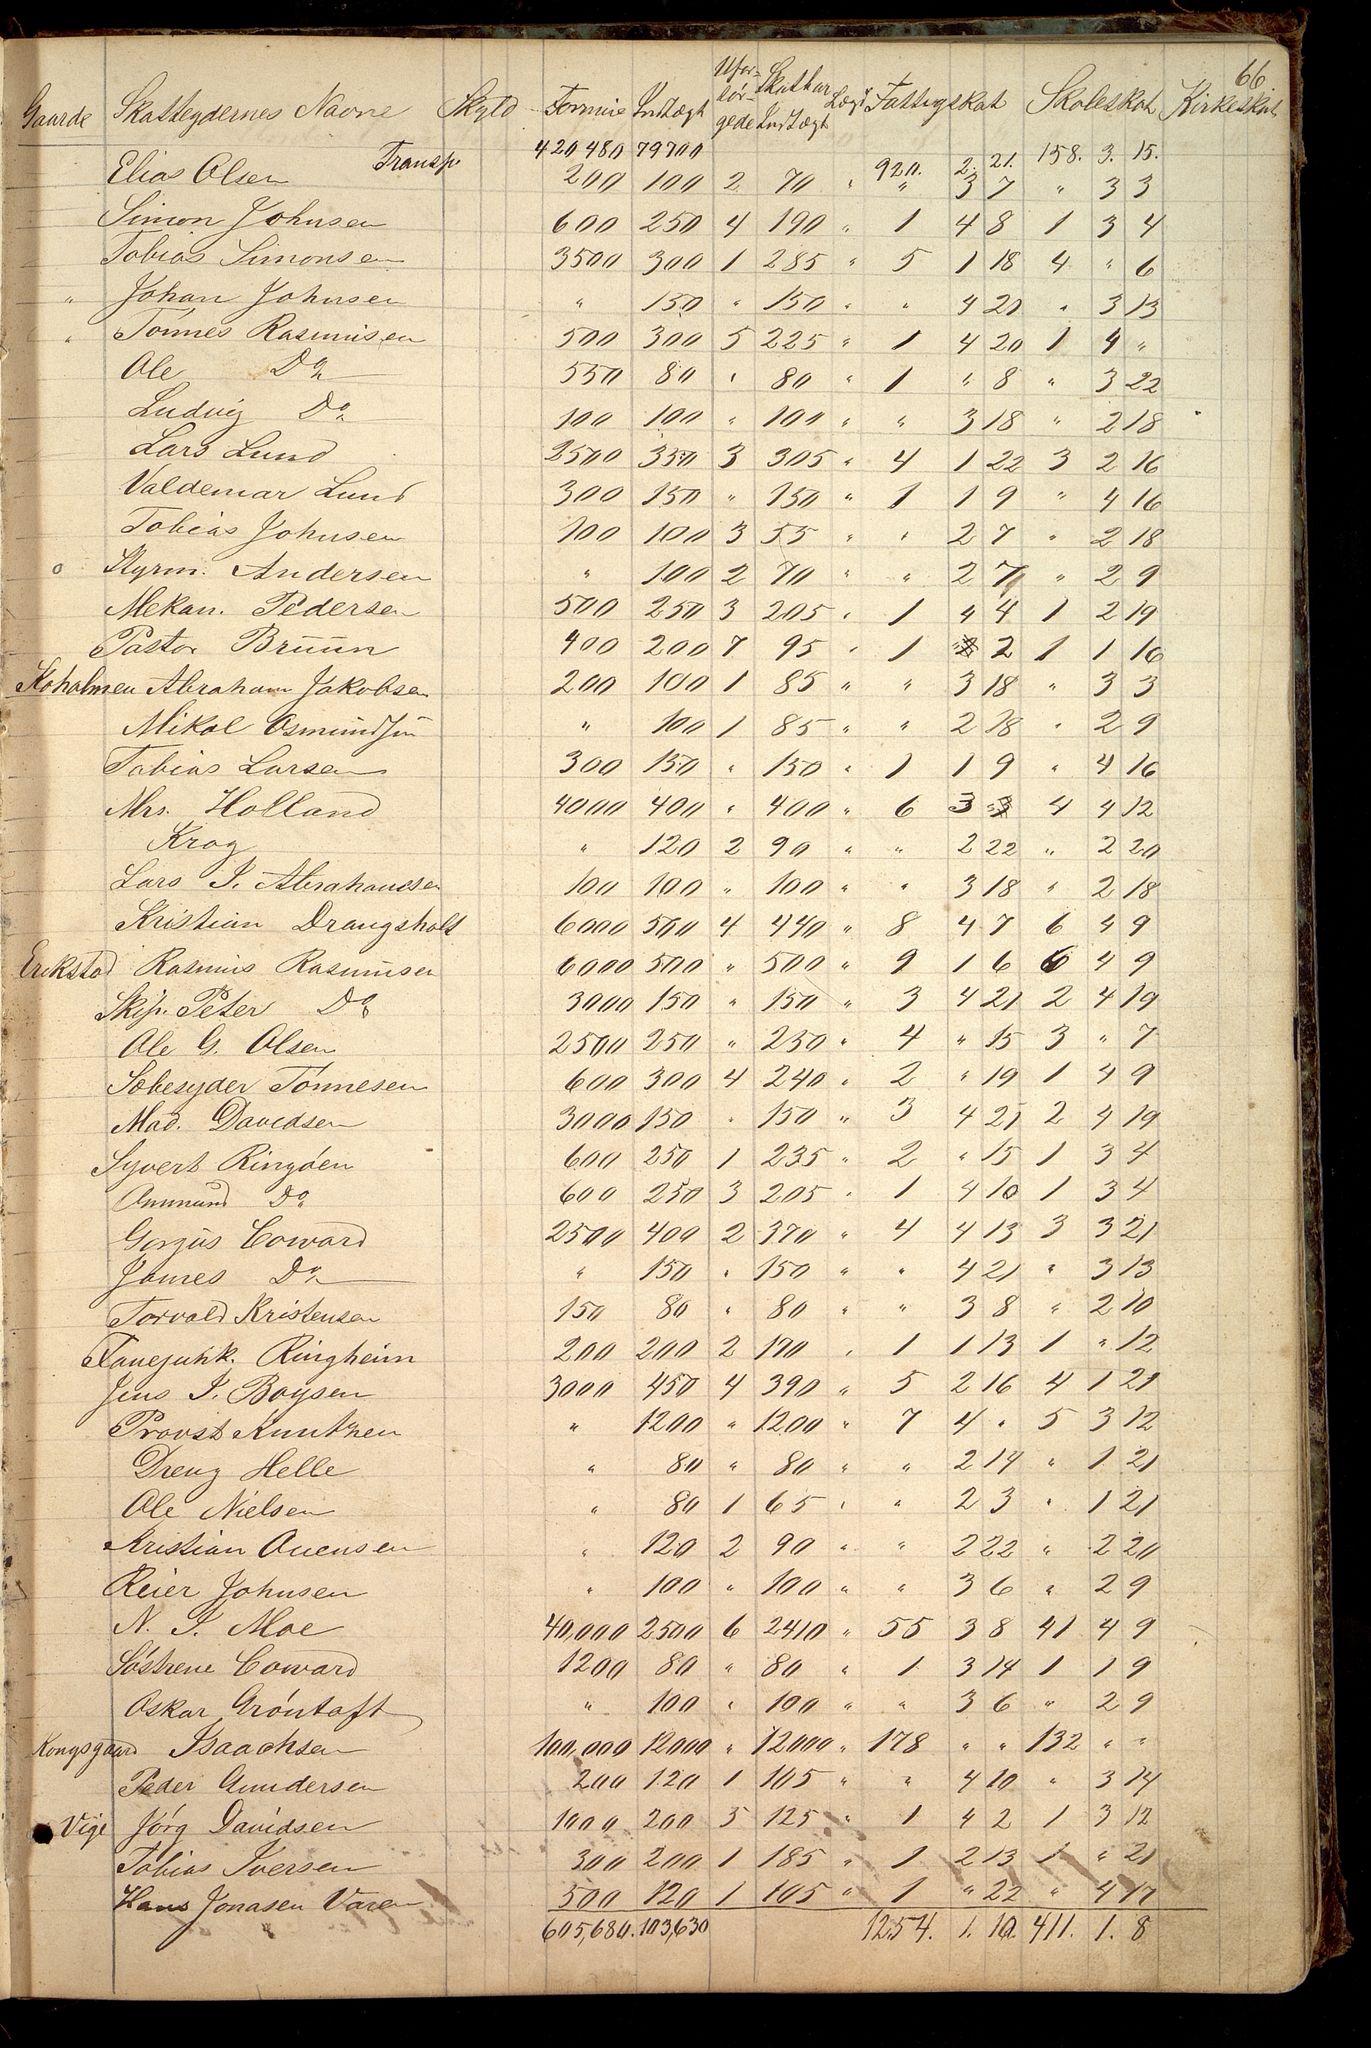 66
Gaarde Skatteydernes Navne Skyld Formue Indtægt Ufor- sör- gede Skatbar Indtægt Lægd Fattigskat Skoleskat Kirkeskat
Transp. 420480 79700 920. 2. 21. 158. 3. 15.
Elias Olsen 200 100 2 70 " " 3 7 " 3 3
Simon Johnsen 600 250 4 190 " 1 4 8 1 3 4
Tobias Simonsen 3500 300 1 285 " 5 1 18 4 " 6
" Johan Johnsen " 150 " 150 " " 4 21 " 3 13
" Tönnes Rasmusen 500 300 5 225 " 1 4 20 1 4 "
Ole Do 550 80 " 80 " 1 " 8 " 3 22
Ludvig Do 100 100 " 100 " " 3 18 " 2 18
Lars Lund 2500 350 3 305 " 4 1 22 3 2 16
Valdemar Lund 300 150 " 150 " 1 1 9 " 4 16
Tobias Johnsen 100 100 3 55 " " 2 7 " 2 18
o Styrm. Andersen " 100 2 70 " " 2 7 " 2 9
Mekan. Pedersen 500 250 3 205 " 1 4 4 1 2 19
Pastor Bruun 400 200 7 95 " 1 " 2 1 1 16
Koholmen Abraham Jakobsen 200 100 1 85 " " 3 18 " 3 3
Mikal Osmundsen " 100 1 85 " " 2 18 " 2 9
Tobias Larsen 300 150 " 150 " 1 1 9 " 4 16
Mrs. Holland 4000 400 " 400 " 6 3 " 4 4 12
Krog " 120 2 90 " " 2 22 " 2 20
Lars I. Abrahamsen 100 100 " 100 " " 3 18 " 2 18
Kristian Drangsholt 6000 500 4 440 " 8 4 7 6 4 9
Erikstad Rasmus Rasmusen 6000 500 " 500 " 9 1 6 6 4 9
Skip. Peter Do 3000 150 " 150 " 3 4 21 2 4 19
Ole G. Olsen 2500 250 " 250 " 4 " 15 3 " 7
Sæbesyder Tönnesen 600 300 4 240 " 2 " 19 1 4 9
Mad. Davidsen 3000 150 " 150 " 3 4 21 2 4 19
Syvert Ringöen 600 250 1 235 " 2 " 15 1 3 4
Ommund Do 600 250 3 205 " 1 4 10 1 3 4
Gorjus Coward 2500 400 2 370 " 4 4 13 3 3 21
James Do " 150 " 150 " " 4 21 " 3 13
Torvald Kristensen 150 80 " 80 " " 3 8 " 2 10
Ringheim 200 200 2 170 " 1 1 13 1 " 12
Jens I. Boysen 3000 450 4 390 " 5 2 16 4 1 21
Provst Knutzen " 1200 " 1200 " 7 4 " 5 3 12
Dreng Helle " 80 " 80 " " 2 14 " 1 21
Ole Nielsen " 80 1 65 " " 2 3 " 1 21
Kristian Auensen " 120 2 90 " " 2 22 " 2 20
Reier Johnsen " 100 " 100 " " 3 6 " 2 9
N. I. Moe 40,000 2500 6 2410 " 55 3 8 41 4 9
Söstrene Coward 1200 80 " 80 " 1 3 14 1 1 9
Oskar Gröntoft " 100 " 100 " " 3 6 " 2 9
Kongsgaard Isaachsen 100,000 12000 " 12000 " 178 " " 132 " "
Peder Gundersen 200 120 1 105 " " 4 10 " 3 14
Vige Jörg Davidsen 1000 200 5 125 " 1 4 2 1 3 12
Tobias Iversen 300 200 1 185 " 1 2 13 1 " 21
Hans Jonasen Varen 500 120 1 105 " 1 " 22 " 4 17
605,680. 103,630 1254. 1. 10. 411. 1. 8